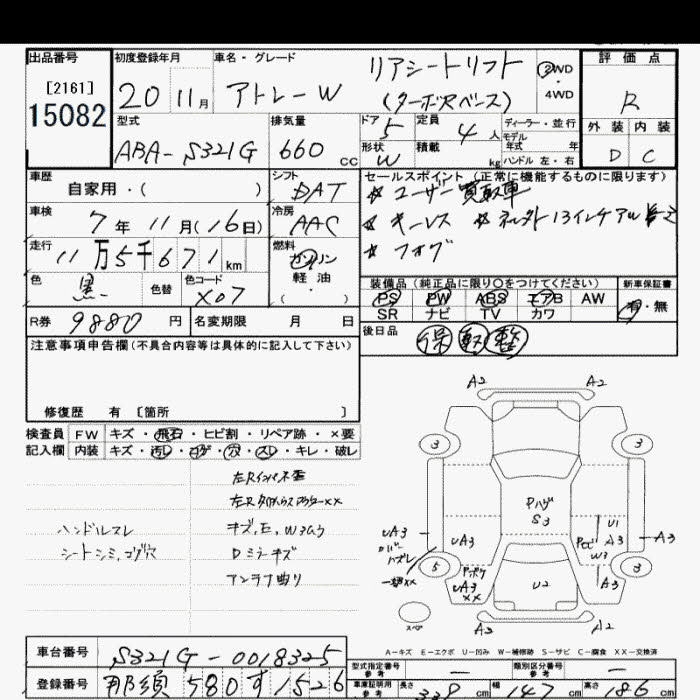 出品番号 初度登録年月 車名・グレード リアシートリフト ②WD 評価点
[2161] 4WD
15082 20 11月 アトレーW (ターボRベース) R
型式 排気量 ドア 定員 ディーラー・並行 外装 内装
5 4人 モデル
ABA-S321G 660cc 形状 積載 年式 年 D C
W kg ハンドル 左・右
車歴 シフト セールスポイント(正常に機能するものに限ります)
自家用・( ) DAT ☆ユーザー買取車
車検 冷房 ☆キーレス
7年11月(16日) AAC ☆フォグ
走行 燃料
11万5千671km ガソリン
軽油
色 色替 色コード ・( ) 装備品(純正品に限り○をつけてください) 新車保証書
黒 X07 PS PW ABS エアB AW 有・無
R券 9880円 名変期限 月 日 SR ナビ TV カワ
注意事項申告欄(不具合内容等は具体的に記入して下さい) 後日品 保 取 整
修復歴 有 [箇所 ]
検査員 FW キズ・飛石・ヒビ割・リペア跡・×要
記入欄 内装 キズ・汚レ・コゲ・穴・スレ・キレ・破レ
ハンドルスレ キズ,E,W3ムラ
シートシミ,コゲ穴 Dミラーキズ
アンテナ曲り
A2 A2
3 3
Pハゲ
S3
UA3 UA3 U1 A3 A3
W3
5 3
UA3 XX U2 A3
スペ A2 A2
A-キズ E-エクボ U-凹み W-補修跡 S-サビ C-腐食 XX-交換済
車台番号 S321G-0018325 型式指定番号 参考 — 類別区分番号 参考 —
登録番号 那須 580 す 1526 車庫証明用 参考 長さ 339cm 幅 147cm 高さ 186cm